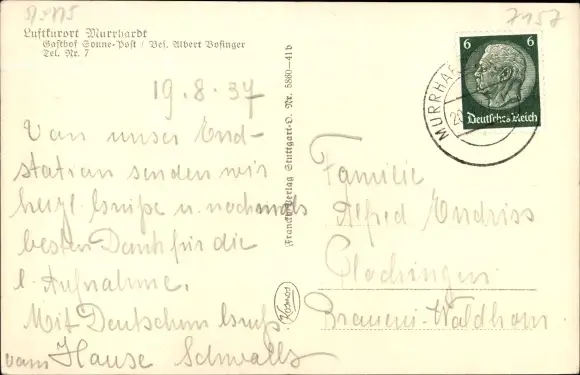 7157
Luftkurort Murrhardt
Gasthof Sonne-Post / Bes. Albert Bofinger
Tel. Nr. 7
19.8.37
Von unser End-
station senden wir
herzl. Grüße u. nochmals
besten Dank für die
l. Aufnahme.
Mit Deutschem Gruß
vom Hause Schwalls
Franckh-Verlag Stuttgart-O. Nr. 5860-41b
Kosmos
6 6
Deutsches Reich
MURRHA
20
Familie
Alfred Endriss
Plochingen
Brauerei-Waldhorn